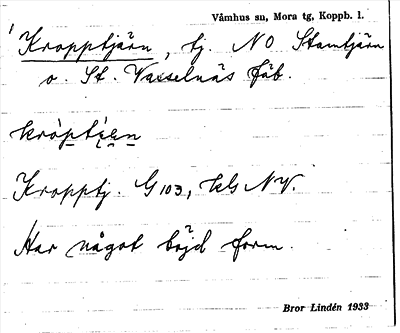 Våmhus sn, Mora tg, Koppb. l.
Kropptjärn, tj. NO Stamtjärn
o. St. Vasselnäs fäb.
kròptjæ̀n
Kropptj. G 103, kls NV.
Har något böjd form.
Bror Lindén 1933